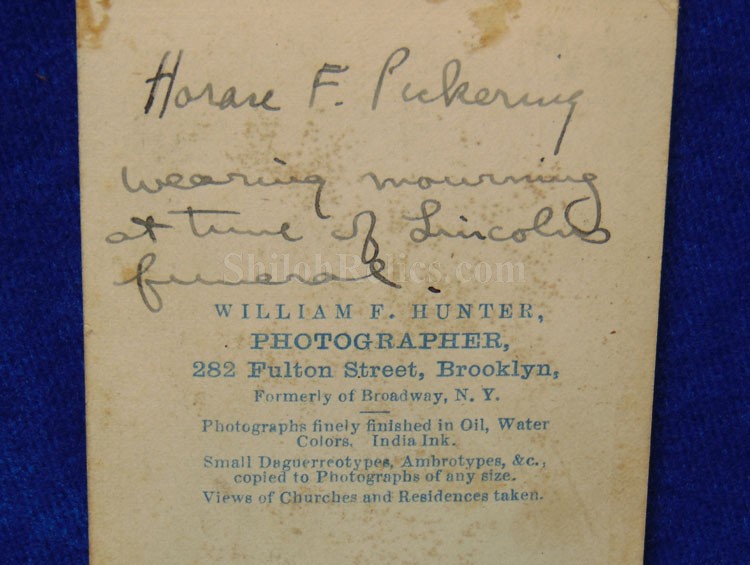 Horace F. Pickering
wearing mourning
at time of Lincolns
funeral.
ShilohRelics.com
WILLIAM F. HUNTER,
PHOTOGRAPHER,
282 Fulton Street, Brooklyn,
Formerly of Broadway, N. Y.
Photographs finely finished in Oil, Water
Colors. India Ink.
Small Daguerreotypes, Ambrotypes, &c.,
copied to Photographs of any size.
Views of Churches and Residences taken.